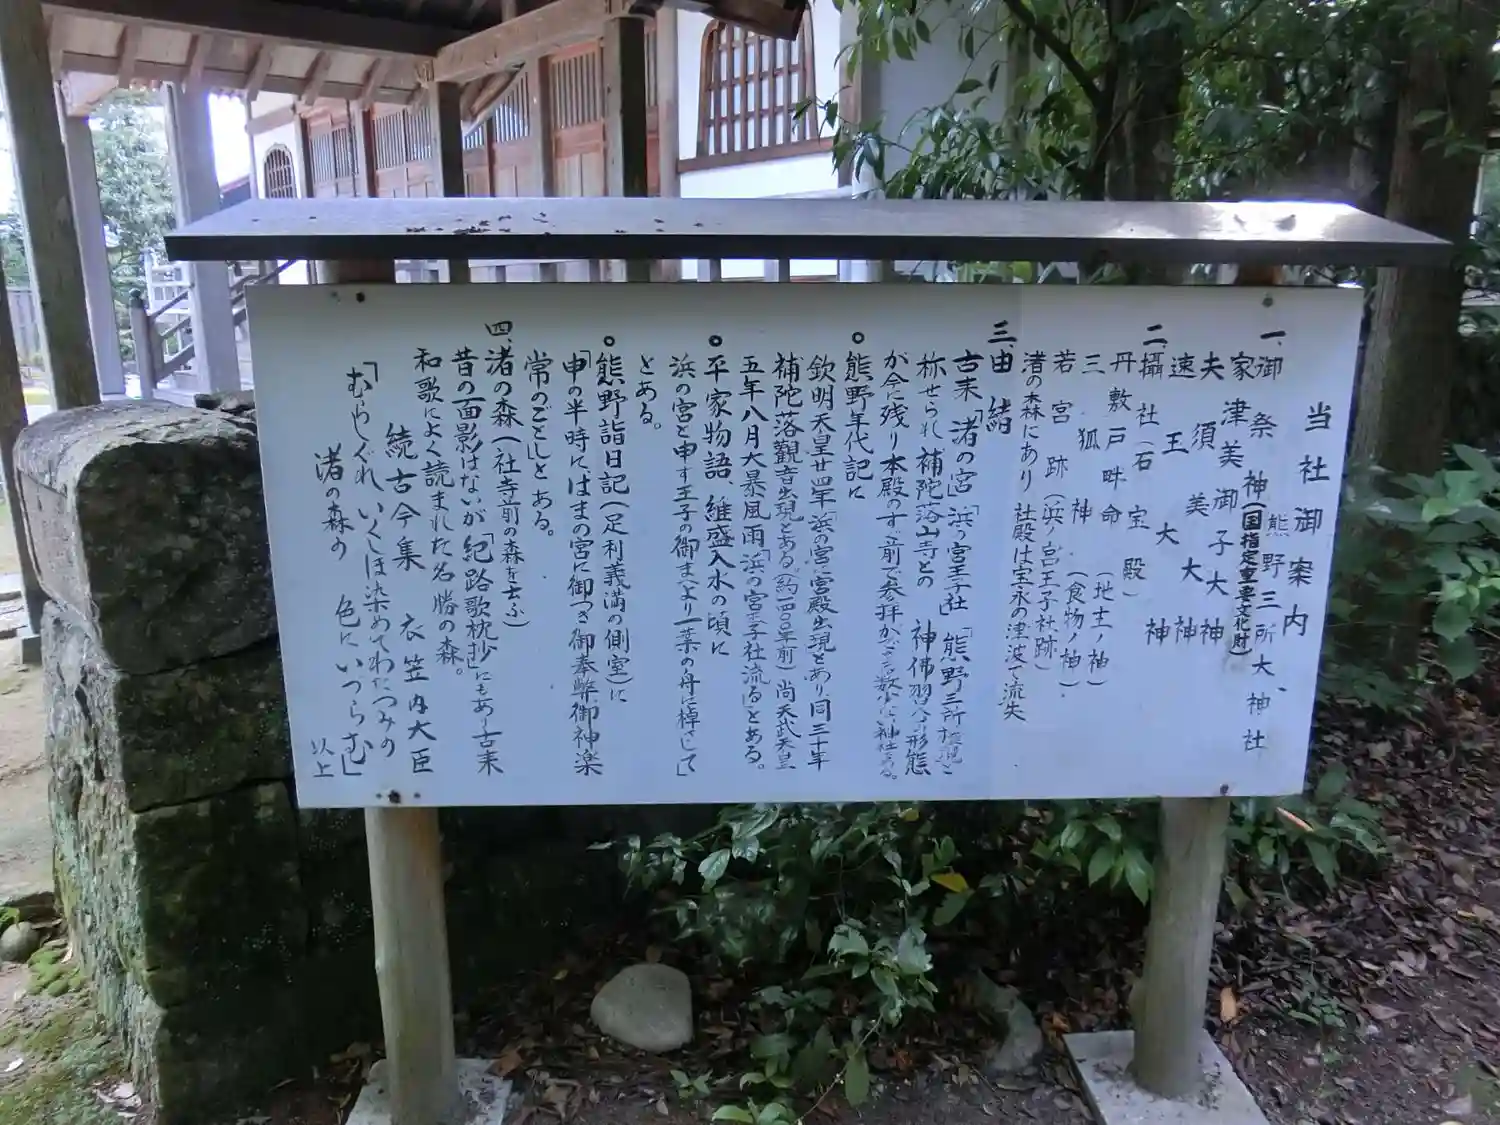 当社御案内
熊野三所大神社
一、御祭神(国指定重要文化財)
家津美御子大神
夫須美大神
速玉大神
二、攝社(石宝殿)
丹敷戸畔命(地主ノ神)
三狐神(食物ノ神)
若宮跡(浜ノ宮王子社跡)
渚の森にあり 社殿は宝永の津波で流失
三、由緒
古来「渚の宮」「浜の宮王子社」「熊野三所権現」と
称せられ補陀落山寺との 神佛習合の形態
が今に残り本殿のすぐ前で参拝ができる数少い神社である。
○熊野年代記に
欽明天皇廿四年「浜の宮に宮殿出現とあり同三十年
補陀落観音出現とある(約一四〇〇年前)尚天武天皇
五年八月大暴風雨「浜の宮王子社流る」とある。
○平家物語、維盛入水の頃に
浜の宮と申す王子の御まへより一葉の舟に棹さして」
とある。
○熊野詣日記(足利義満の側室)に
「申の半時にはまの宮に御つき御奉幣御神楽
常のごとし」とある。
四、渚の森(社寺前の森を云ふ)
昔の面影はないが「紀路歌枕抄」にもあり古来
和歌によく読まれた名勝の森。
続古今集 衣笠内大臣
「むらしぐれ いくしほ染めてわたつみの
渚の森の 色にいづらむ」
以上